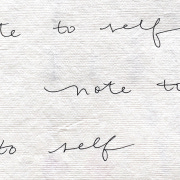 te to self
note t
to self